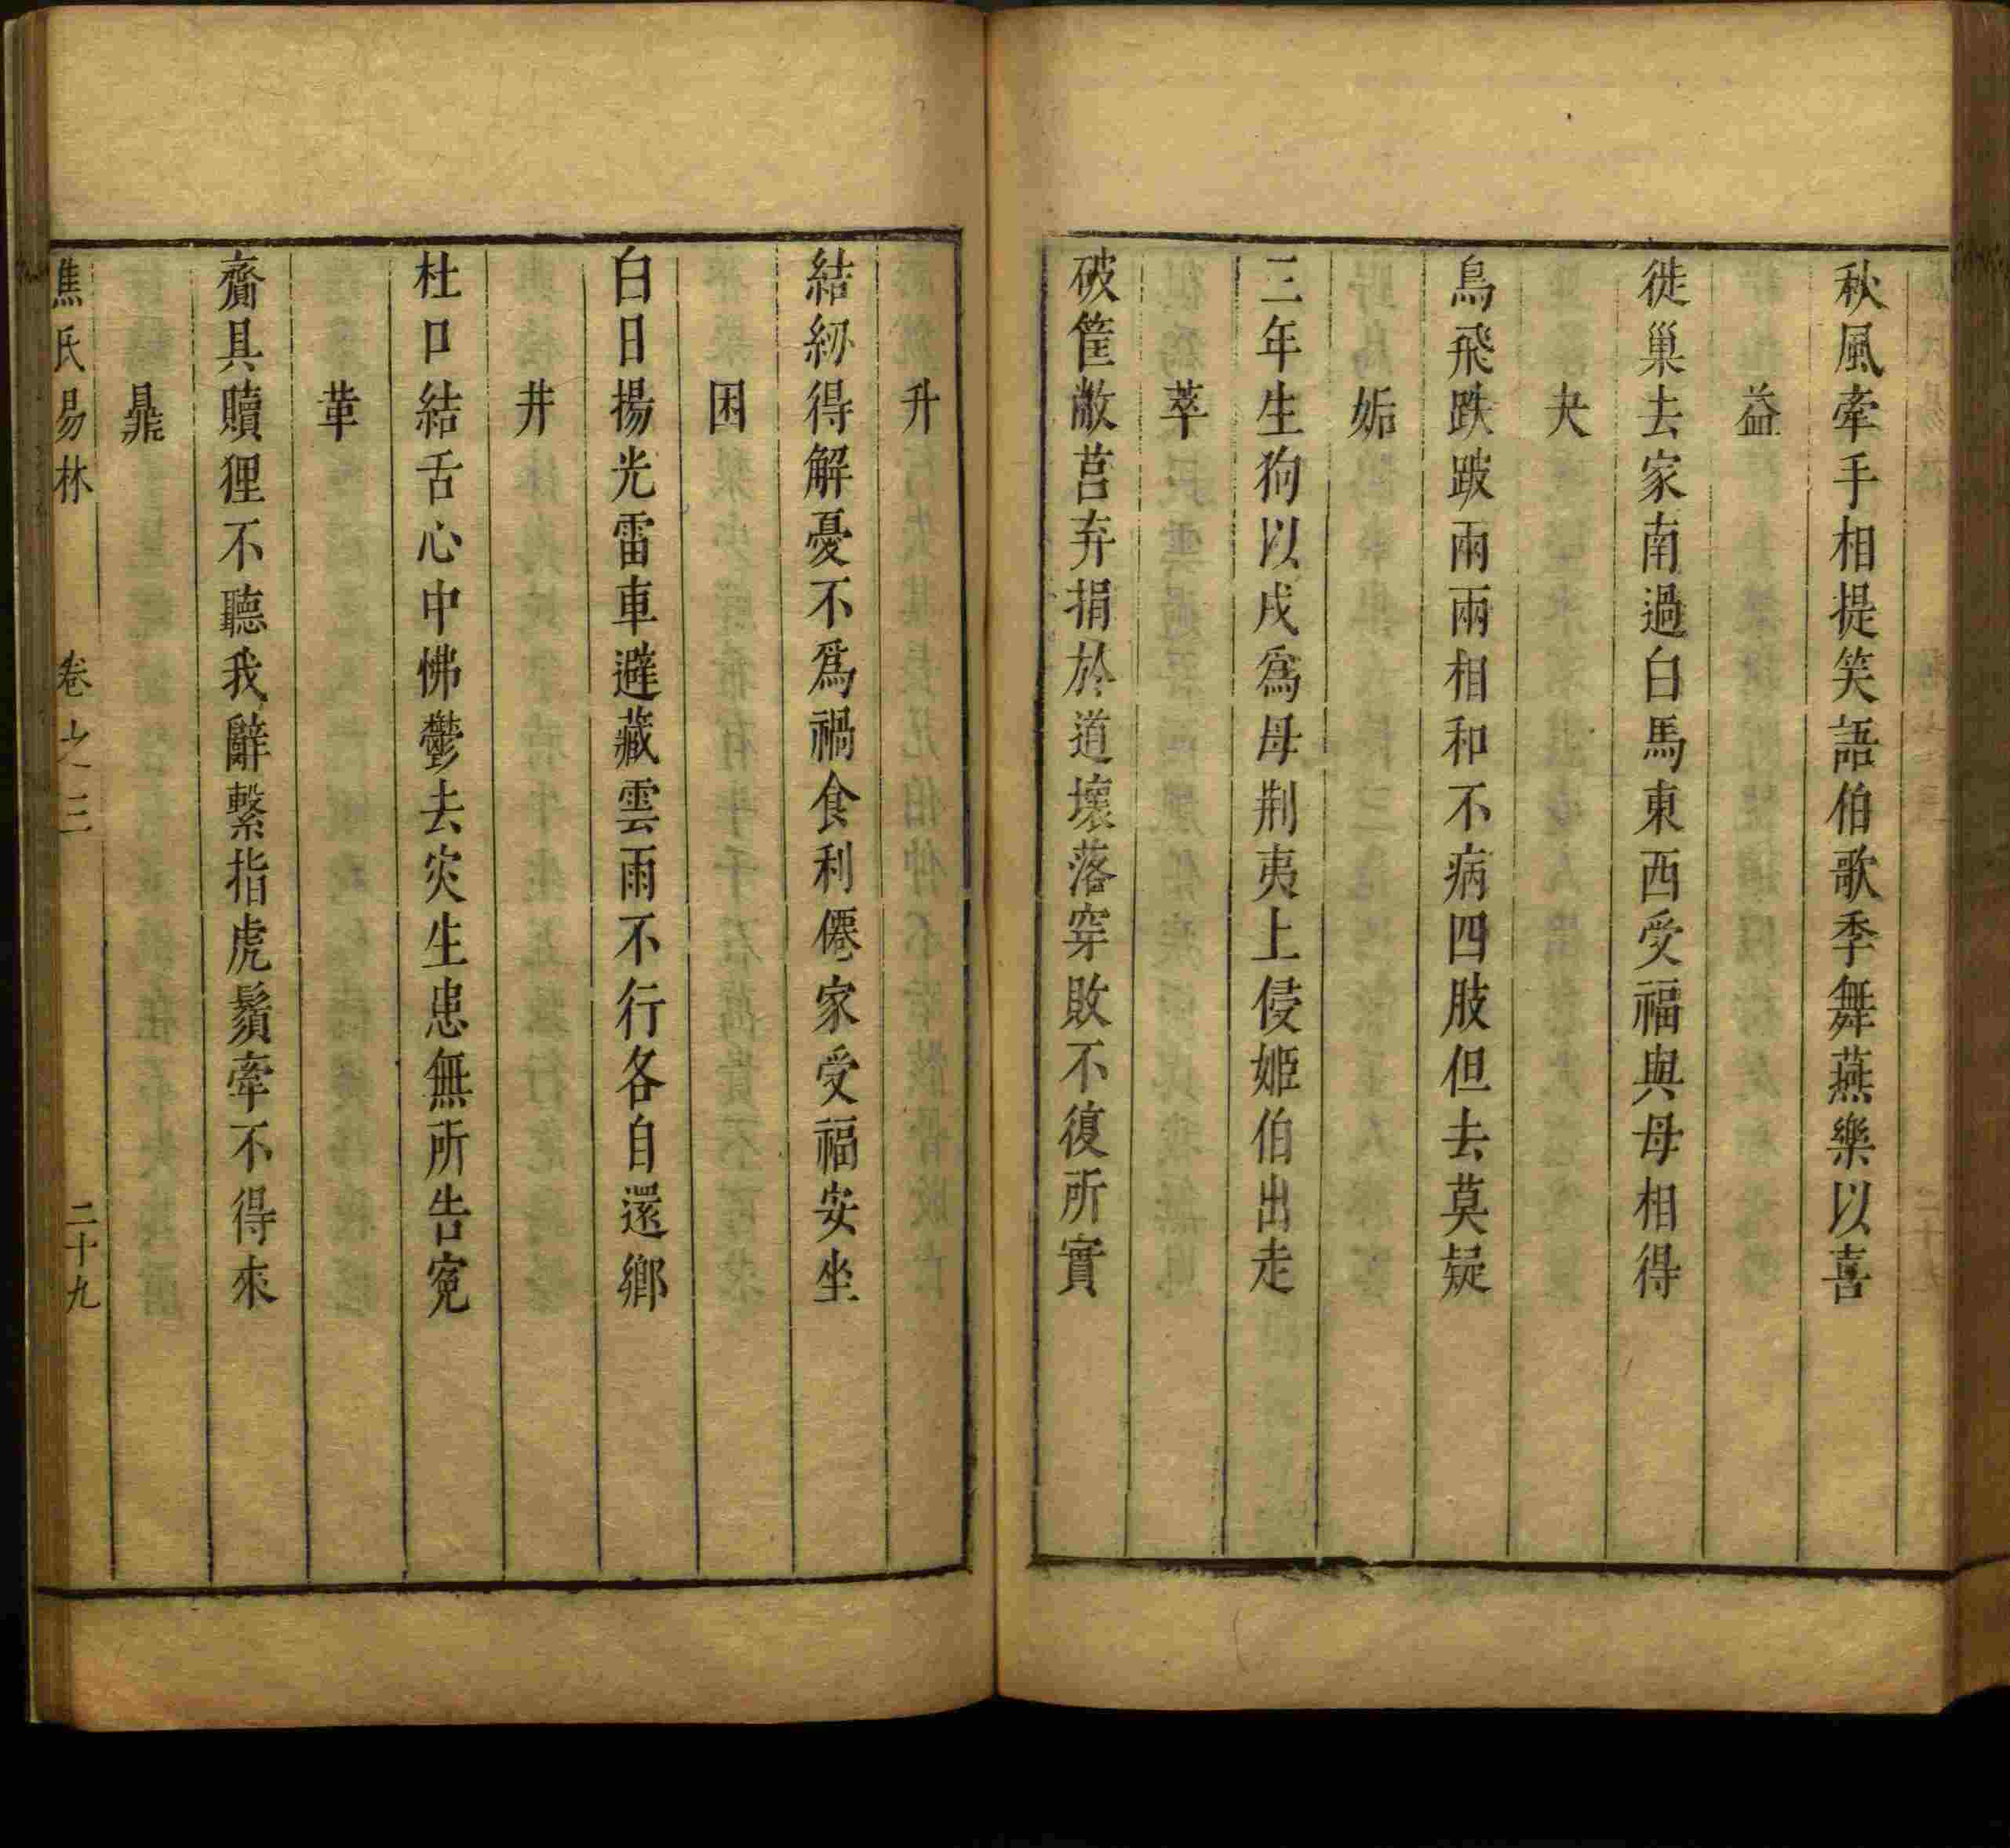 秋風牽手相提笑語伯歌季舞燕樂以喜
益
徙巢去家南過白馬東西受福與母相得
夬
鳥飛跌跛兩兩相和不病四肢但去莫疑
姤
三年生狗以戌爲母荆夷上侵姬伯出走
萃
破筐敝莒弃捐於道壞落穿敗不復所實
升
結紛得解憂不爲禍食利僊家受福安坐
困
白日揚光雷車避藏雲雨不行各自還鄉
井
杜口結舌心中怫鬱去灾生患無所告寃
革
齎具贖狸不聽我辭繫指虎鬚牽不得來
鼎
焦氏易林 卷之三 二十九